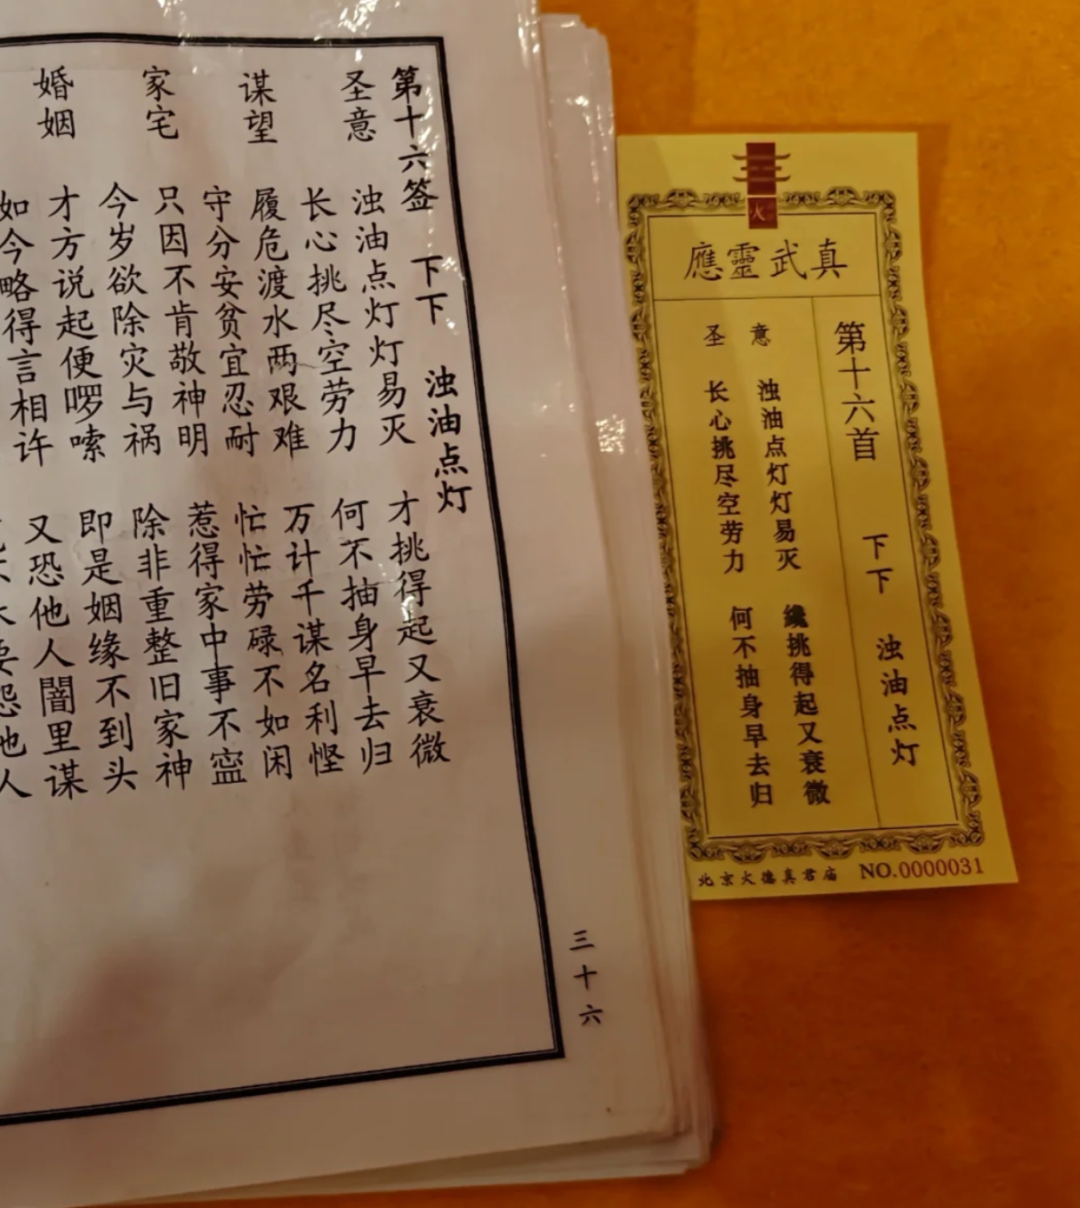 第十六签 下下 浊油点灯
圣意 浊油点灯灯易灭 才挑得起又衰微
长心挑尽空劳力 何不抽身早去归
谋望 履危渡水两艰难 万计千谋名利悭
守分安贫宜忍耐 忙忙劳碌不如闲
家宅 只因不肯敬神明 惹得家中事不寍
今岁欲除灾与祸 除非重整旧家神
婚姻 才方说起便啰嗦 即是姻缘不到头
如今略得言相许 又恐他人闇里谋
要怨他人
三十六
火
真武靈應
第十六首 下下 浊油点灯
圣意
浊油点灯灯易灭 纔挑得起又衰微
长心挑尽空劳力 何不抽身早去归
北京火德真君庙 NO.0000031